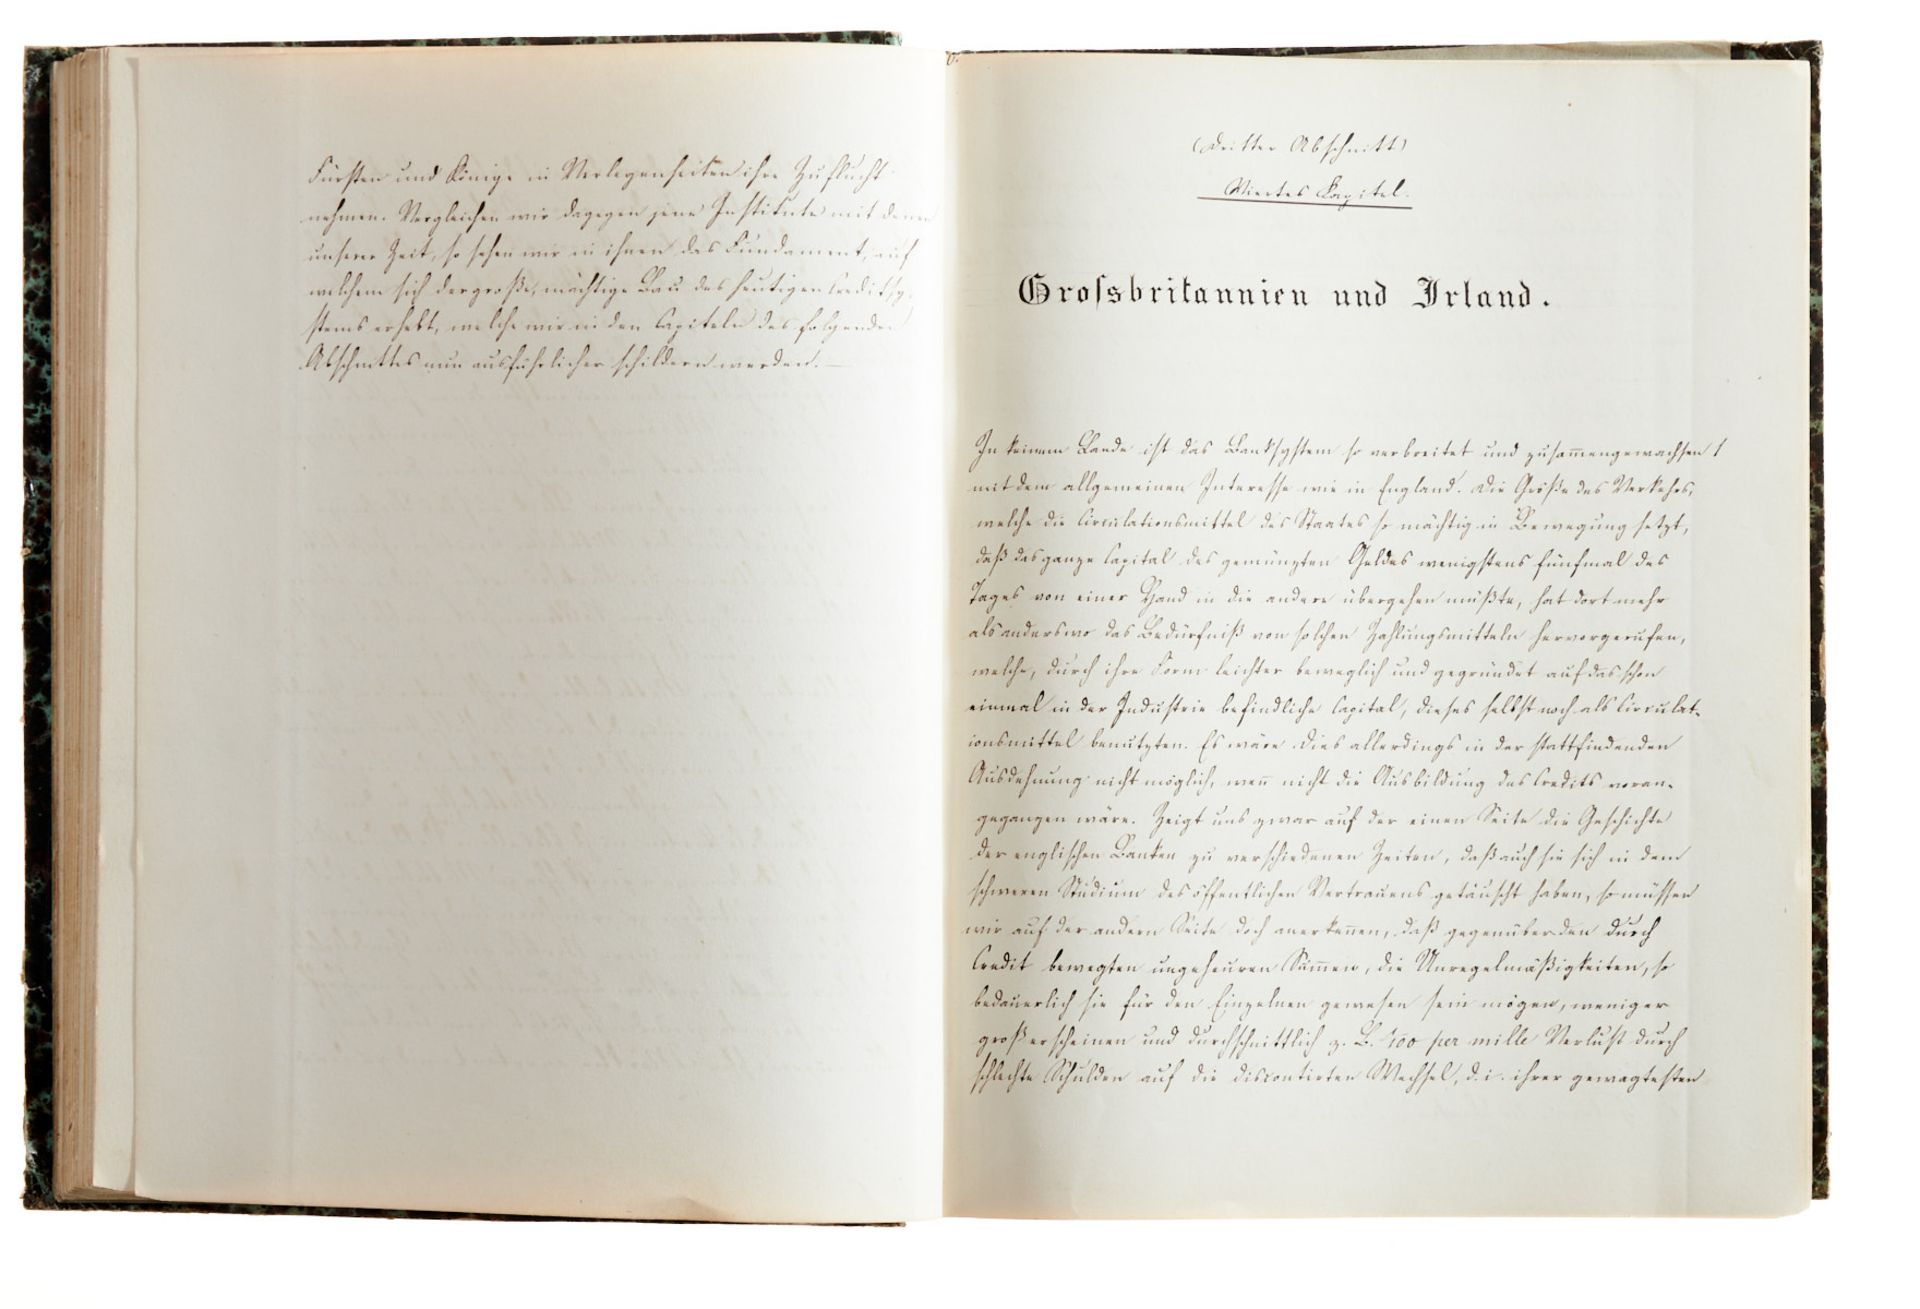 Fürsten und Könige in Verlegenheiten ihre Zuflucht
nehmen. Vergleichen wir dagegen jene Institute mit denen
unserer Zeit, so sehen wir in ihnen das Fundament, auf
welchem sich der große, mächtige Bau des heutigen Creditsy-
stems erhebt, welche wir in den Capiteln des folgenden
Abschnittes nun ausführlicher schildern werden. —
(Dritter Abschnitt)
Viertes Kapitel.
Grossbritannien und Irland.
In keinem Lande ist das Banksystem so verbreitet und zusam̅engewachsen
mit dem allgemeinen Interesse wie in England. Die Größe des Verkehrs,
welche die Circulationsmittel des Staates so mächtig in Bewegung setzt,
daß das ganze Capital des gemünzten Geldes wenigstens fünfmal des
Tages von einer Hand in die andere übergehen müßte, hat dort mehr
als anderswo das Bedürfniß von solchen Zahlungsmitteln hervorgerufen,
welche, durch ihre Form leichter beweglich und gegründet auf das schon
einmal in der Industrie befindliche Capital, dieses selbst noch als Circulat-
ionsmittel benutzten. Es wäre dies allerdings in der stattfindenden
Ausdehnung nicht möglich, wen̅ nicht die Ausbildung des Credits voran-
gegangen wäre. Zeigt uns zwar auf der einen Seite die Geschichte
der englischen Banken zu verschiedenen Zeiten, daß auch sie sich in dem
schweren Studium des öffentlichen Vertrauens getäuscht haben, so müssen
wir auf der andern Seite doch anerken̅en, daß gegenüber den durch
Credit bewegten ungeheuren Sum̅en, die Unregelmäßigkeiten, so
bedauerlich sie für den Einzelnen gewesen sein mögen, weniger
groß erscheinen und durchschnittlich z. B. 1/100 per mille Verlust durch
schlechte Schulden auf die discontirten Wechsel, d. i. ihrer gewagtesten